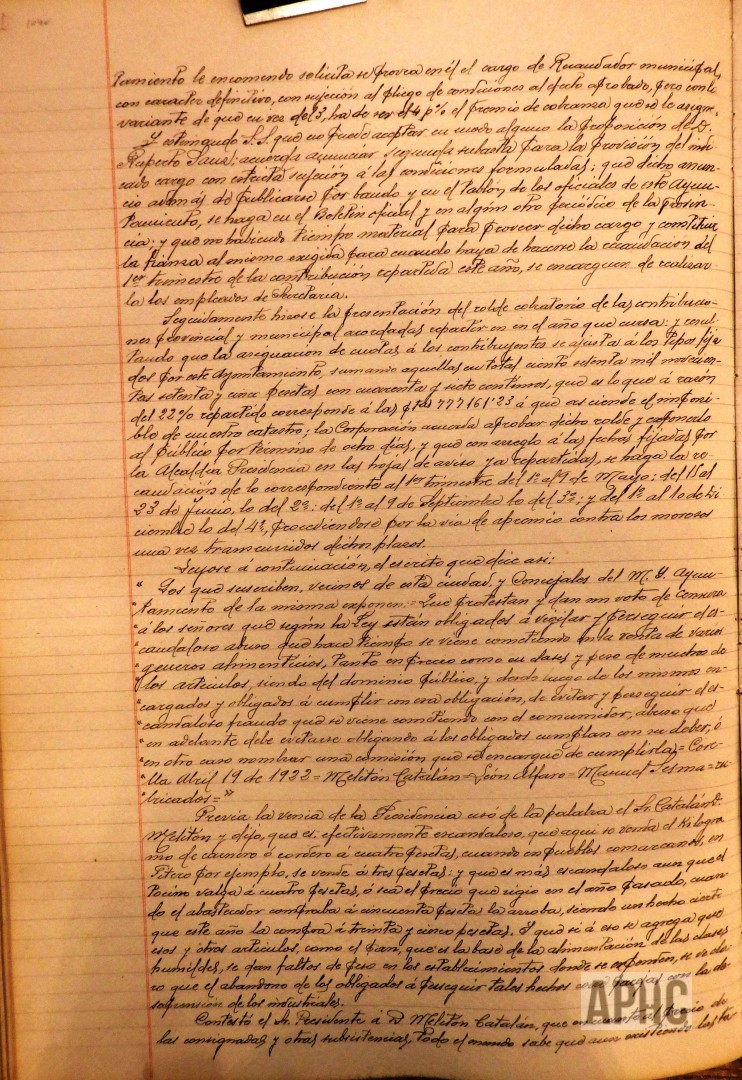 tamiento le encomendo solicita se provea en él el cargo de Recaudador municipal,
con caracter definitivo, con sujeción al pliego de condiciones al efecto aprobado, pero con la
variante de que en vez del 3, ha de ser el 4 p% el premio de cobranza que se le asigne.
Y estimando S.S. que no puede aceptar en modo alguno la proposición de D.
Ruperto Sanz; acuerda anunciar segunda subasta para la provisión del indi-
cado cargo con estricta sujeción á las condiciones formuladas; que dicho anun-
cio además de publicarse por bando y en el tablón de los oficiales de este Ayun-
tamiento, se haga en el Boletín oficial y en algún otro periódico de la provin-
cia; y que no habiendo tiempo material para proveer dicho cargo y constituir
la fianza al mismo exigida para cuando haya de hacerse la recaudación del
1er trimestre de la contribución repartida este año, se encarguen de realizar-
la los empleados de Secretaría.
Seguidamente hízose la presentación del rolde cobratorio de las contribucio-
nes provincial y municipal acordadas repartir en en el año que cursa: y resul-
tando que la asignación de cuotas á los contribuyentes se ajusta á los tipos fija-
dos por este Ayuntamiento, sumando aquellas en total ciento setenta mil novecien-
tas setenta y cinco pesetas con cuarenta y siete centimos, que es lo que á razón
del 22% repartido corresponde á las ptas 777161'23 á que asciende el imponi-
ble de nuestro catastro; la Corporación acuerda aprobar dicho rolde y exponerlo
al público por término de ocho días, y que con arreglo á las fechas fijadas por
la Alcaldía Presidencia en las hojas de aviso ya repartidas, se haga la re-
caudación de lo correspondiente al 1er trimestre del 1º al 9 de Mayo; del 15 al
23 de Junio, lo del 2º: del 1º al 9 de Septiembre lo del 3º; y del 1º al 10 de Di-
ciembre lo del 4º, procediendose por la vía de apremio contra los morosos
una vez transcurridos dichos plazos.
Leyose á continuación, el escrito que dice asi:
" Los que suscriben, vecinos de esta ciudad, y Concejales del M. Y. Ayun-
" tamiento de la misma exponen = Que protestan y dan un voto de censura
" á los señores que según la Ley están obligados á vigilar y perseguir el es-
" caudaloso abuso que hace tiempo se viene cometiendo en la venta de varios
" generos alimenticios, tanto en precio como en clases y peso de muchos de
" los articulos, siendo del dominio público, y desde luego de los mismos en-
" cargados y obligados á cumplir con esa obligación, de evitar y perseguir el es-
" candaloso fraude que se viene cometiendo con el consumidor, abuso que
" en adelante debe evitarse obligando á los obligados cumplan con su deber, ó
" en otro caso nombrar una comisión que se encargue de cumplirla = Core-
" lla Abril 19 de 1922 = Melitón Catalán = León Alfaro = Manuel Sesma = ru-
" bricados = "
Previa la venia de la Presidencia usó de la palabra el Sr. Catalán D.
Melitón y dijo, que es, efectivamente escandaloso, que aqui se venda el Kilogra-
mo de carnero ó cordero á cuatro pesetas, cuando en pueblos comarcanos, en
Fitero por ejemplo, se vende á tres pesetas: y que es más escandaloso aun que el
tocino valga á cuatro pesetas, ó sea el precio que rigió en el año pasado, cuan-
do el abastecedor compraba á cincuenta pesetas la arroba, siendo un hecho cierto
que este año la compra á treinta y cinco pesetas. Y que si á eso se agrega que
esos y otros articulos, como el pan, que es la base de la alimentación de las clases
humildes, se dan faltos de peso en los establecimientos donde se expenden, se ve cla-
ro que el abandono de los obligados á perseguir tales hechos corre parejas con la de-
saprensión de los industriales.
Contestó el Sr. Presidente á D. Melitón Catalán, que en cuanto al precio de
las consignadas y otras subsistencias, todo el mundo sabe que aun existiendo las tas
APHC